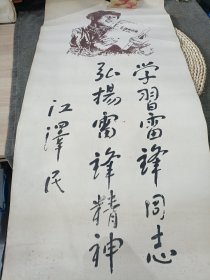 学習雷锋同志
弘揚雷锋精神
江澤民